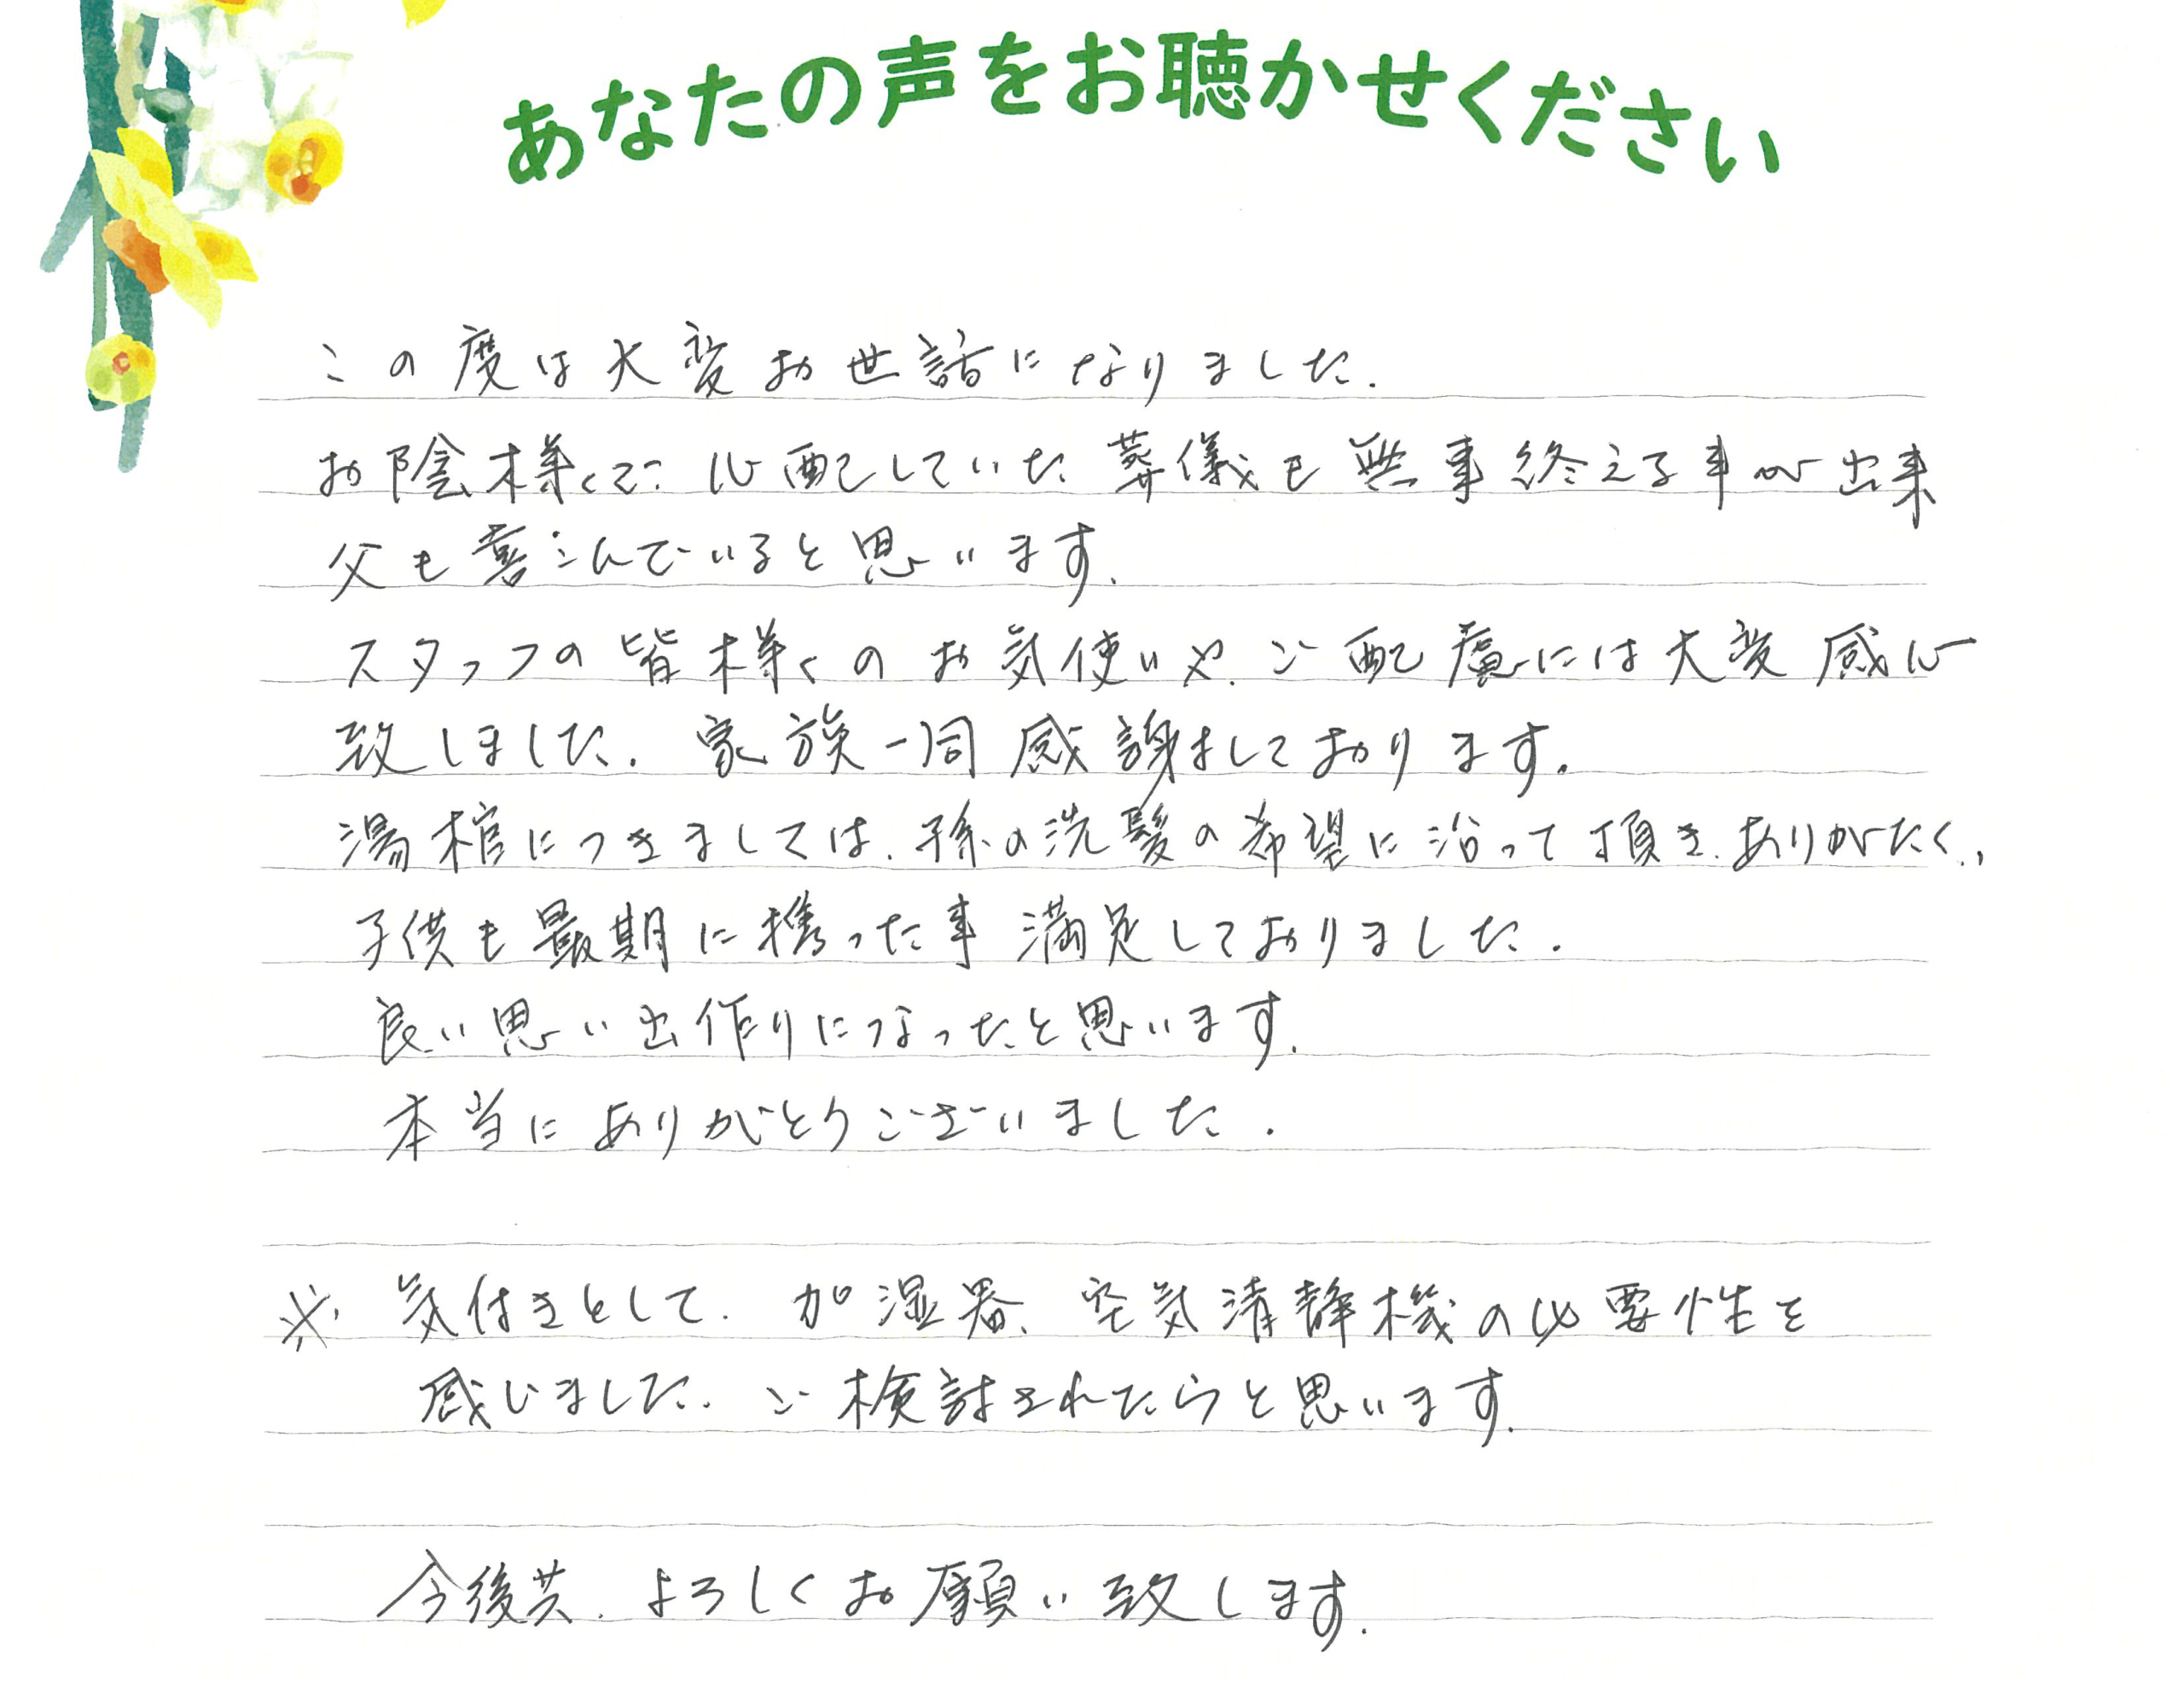 あなたの声をお聴かせください
この度は大変お世話になりました.
お陰様で心配していた葬儀も無事終える事が出来
父も喜こんでいると思います.
スタッフの皆様のお気使いや、ご配慮には大変感心
致しました. 家族一同感謝しております.
湯棺につきましては、孫の洗髪の希望に沿って頂き、ありがたく、
子供も最期に携った事満足しておりました.
良い思い出作りになったと思います.
本当にありがとうございました.
※ 気付きとして、加湿器、空気清静機の必要性を
感じました. ご検討されたらと思います.
今後共、よろしくお願い致します.